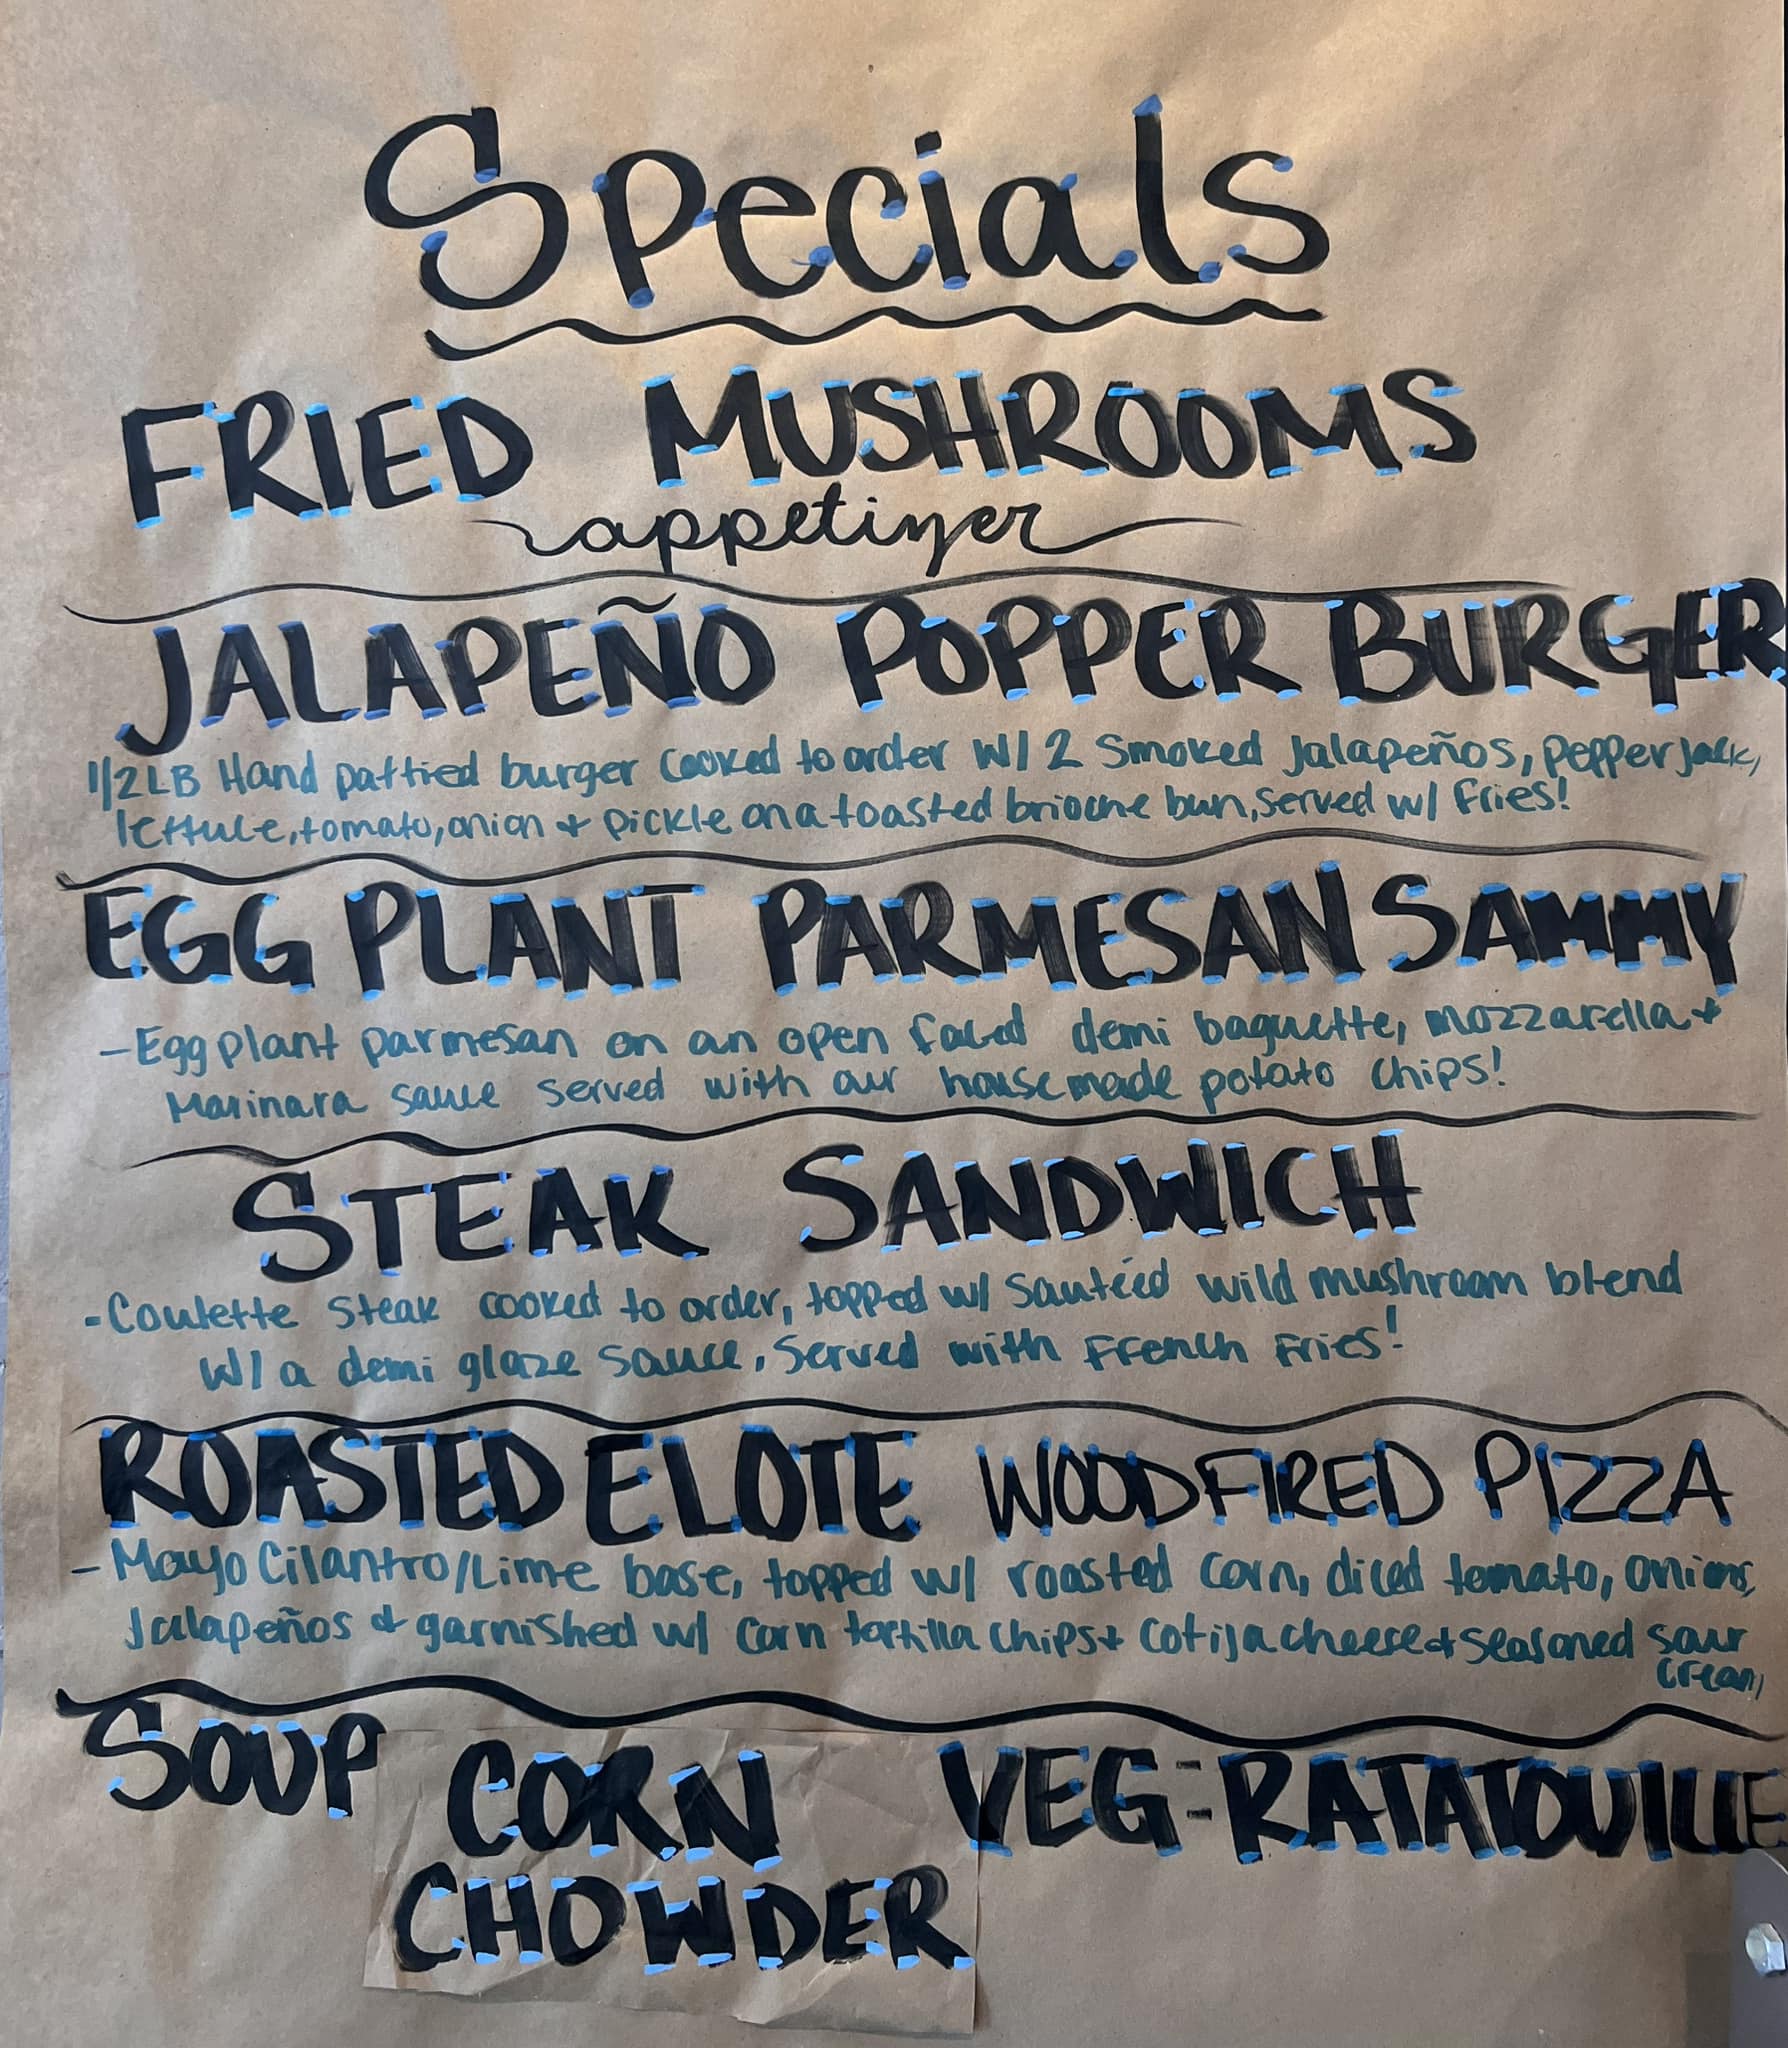 Specials
FRIED MUSHROOMS
appetizer
JALAPEÑO POPPER BURGER
1/2LB Hand pattied burger cooked to order w/ 2 Smoked Jalapeños, pepperjack,
lettuce, tomato, onion & pickle on a toasted brioche bun, served w/ fries!
EGG PLANT PARMESAN SAMMY
- Egg plant parmesan on an open faced demi baguette, mozzarella &
Marinara sauce served with our housemade potato chips!
STEAK SANDWICH
- Coulette steak cooked to order, topped w/ Sautéed wild mushroom blend
w/ a demi glaze sauce, Served with French Fries!
ROASTED ELOTE WOODFIRED PIZZA
- Mayo Cilantro/Lime base, topped w/ roasted corn, diced tomato, onions,
Jalapeños & garnished w/ corn tortilla chips & Cotija cheese & seasoned sour
cream
SOUP CORN VEG-RATATOUILLE
CHOWDER